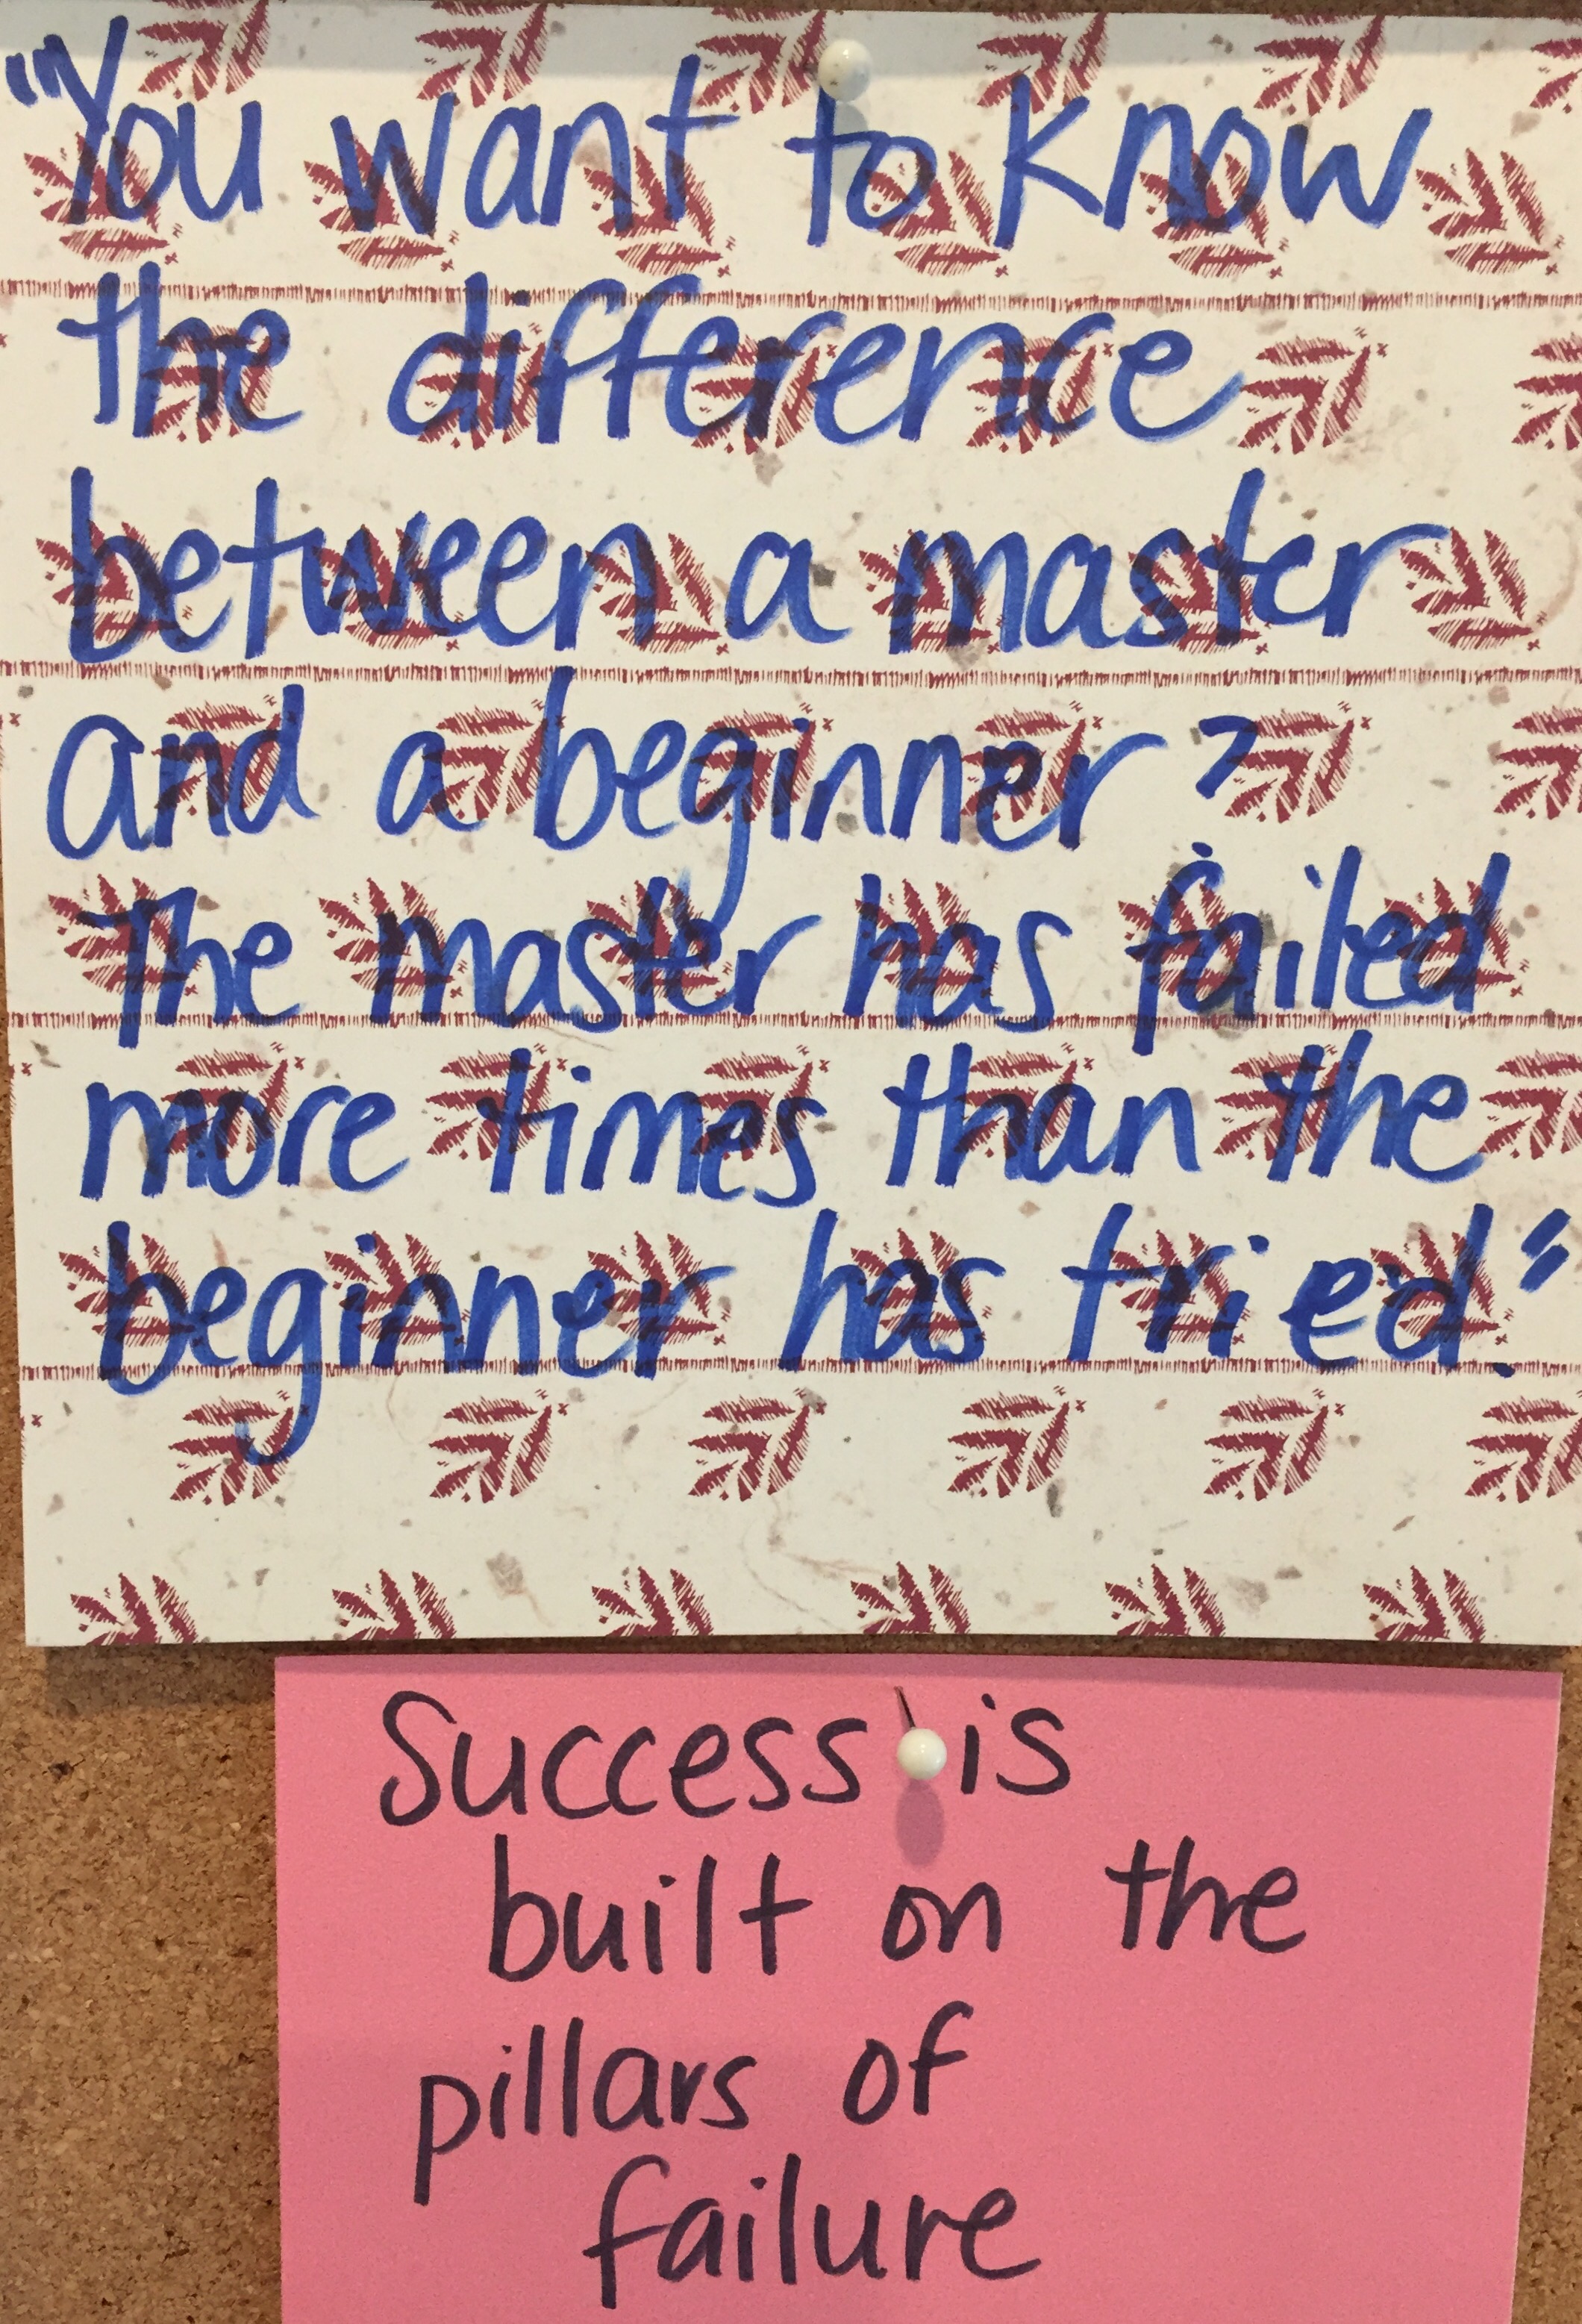 "You want to know
the difference
between a master
and a beginner?
The master has failed
more times than the
beginner has tried."
Success is
built on the
pillars of
failure